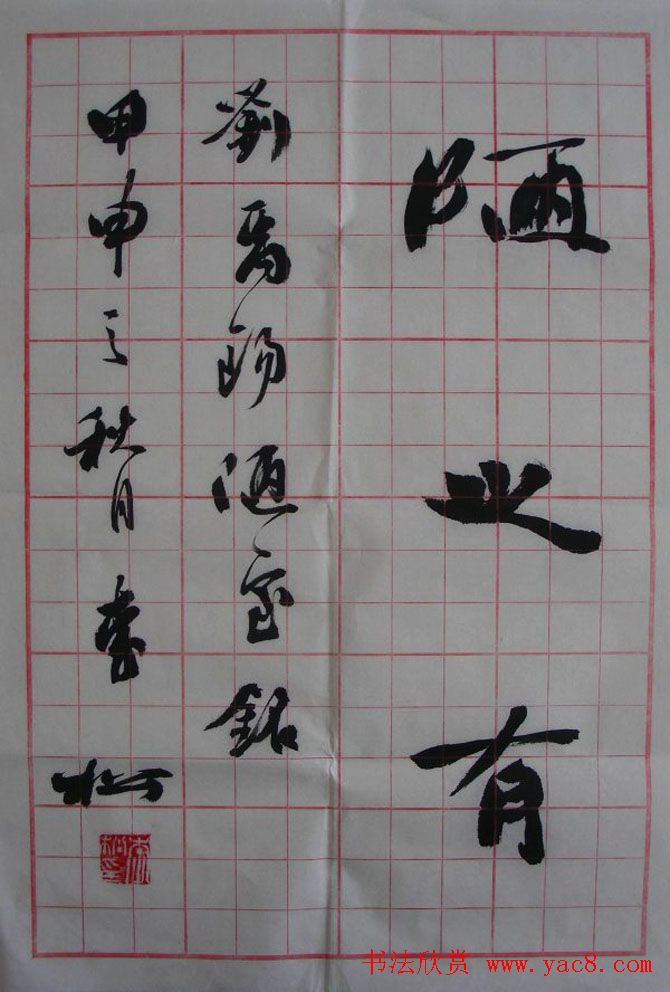 陋之有
劉禹錫陋室銘
甲申之秋月李
书法欣赏 www.yac8.com